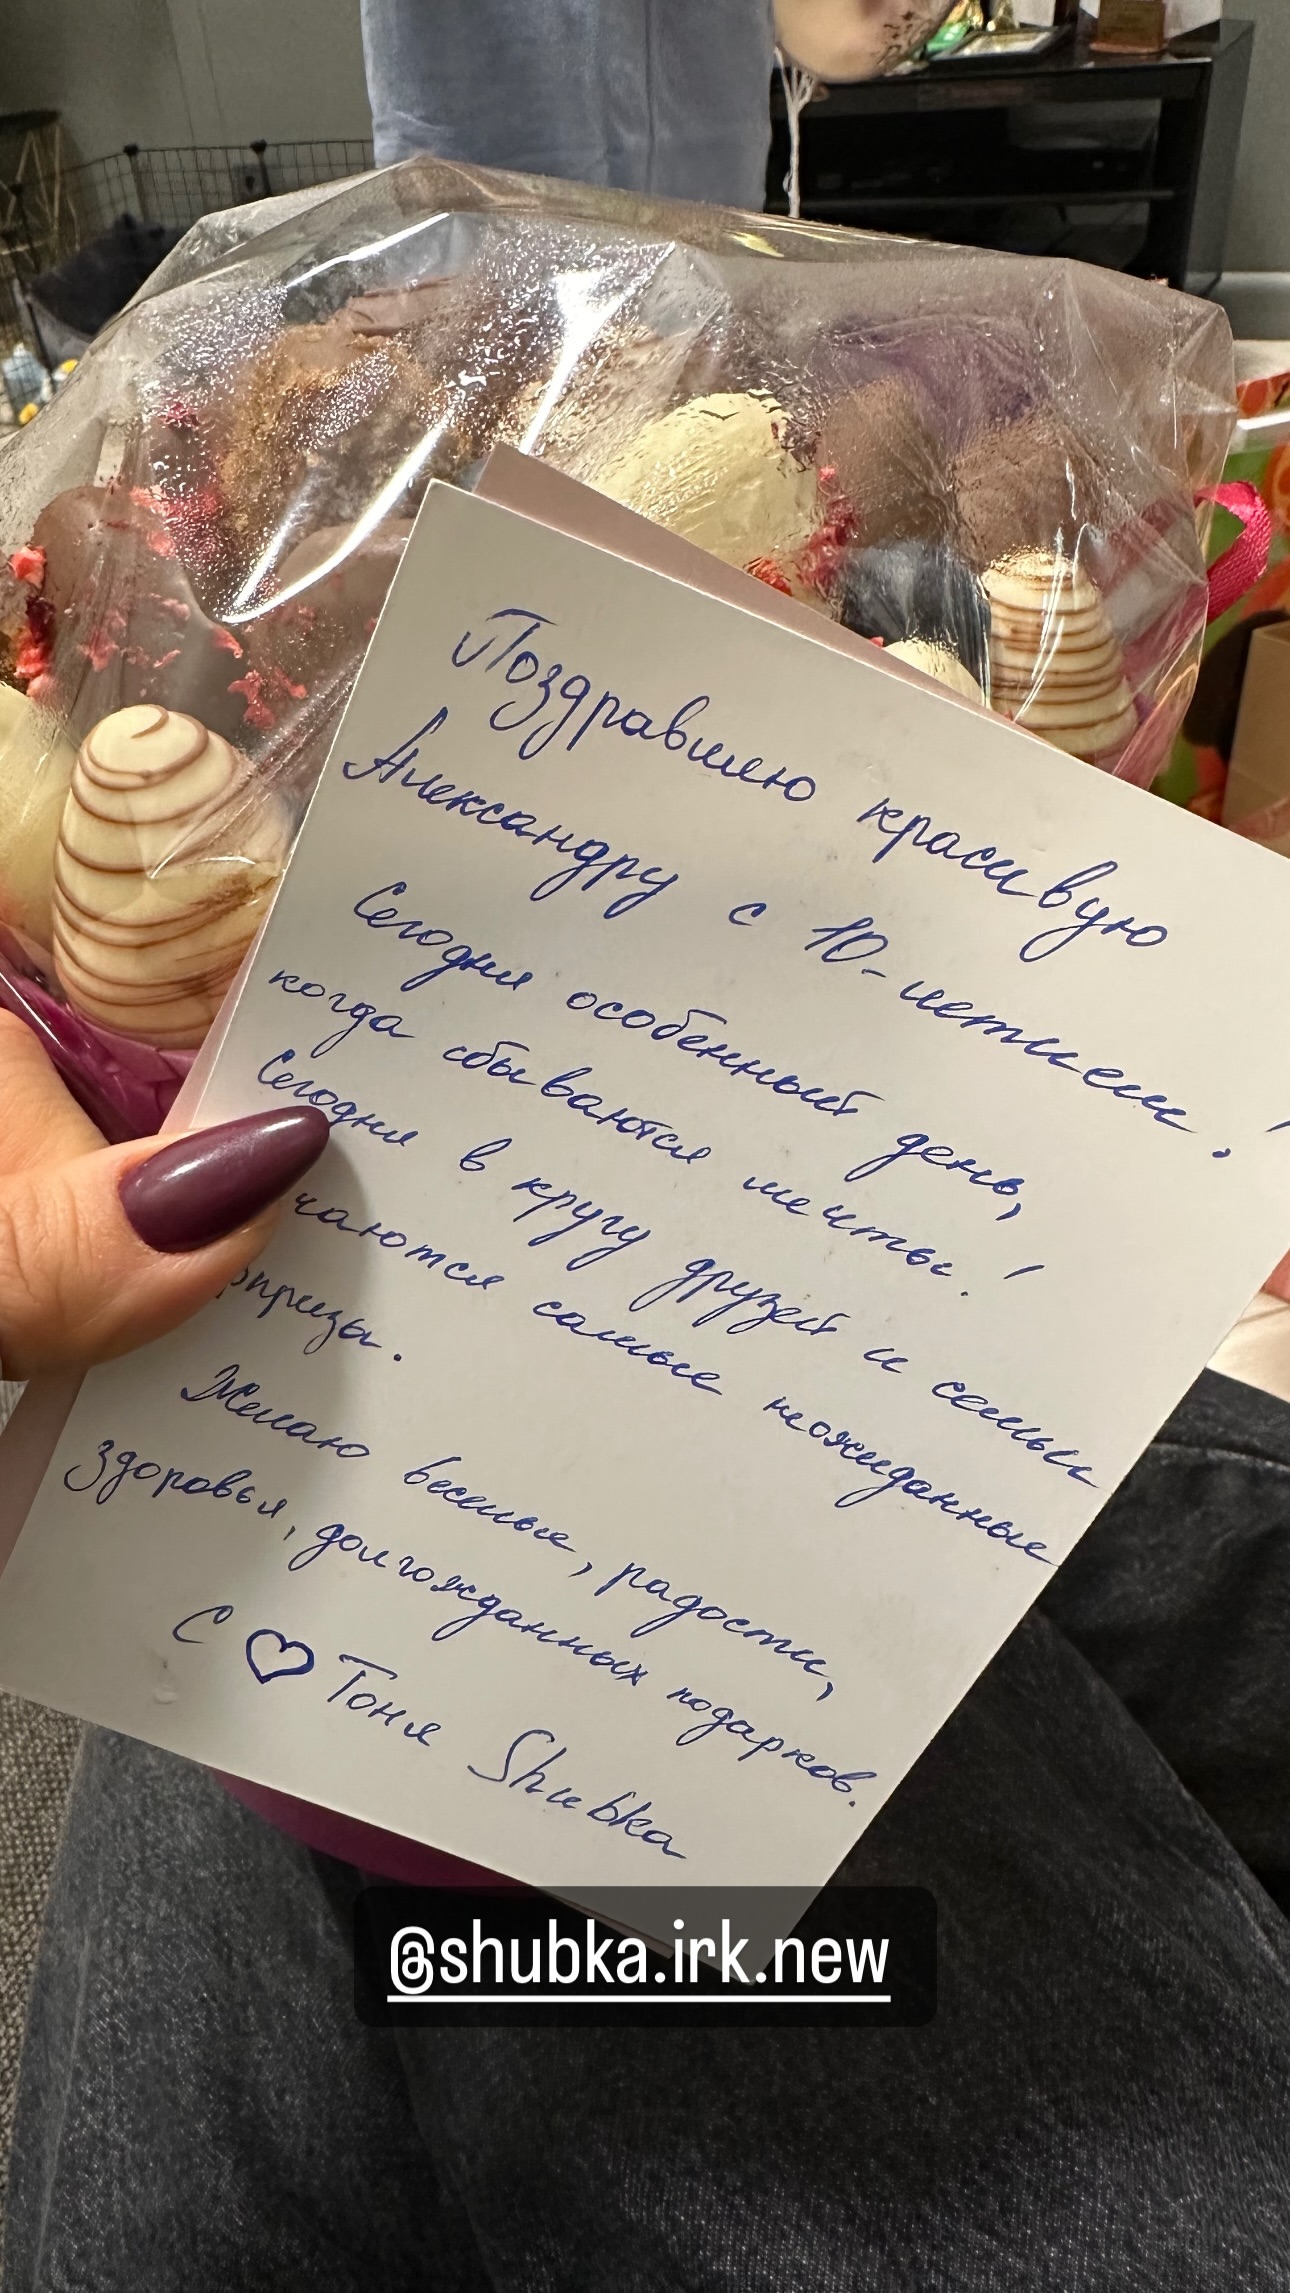 Поздравляю красивую
Александру с 10-летием!
Сегодня особенный день,
когда сбываются мечты!
Сегодня в кругу друзей и семьи
чаются самые неожиданные
рпризы.
Желаю веселья, радости,
здоровья, долгожданных подарков.
С ♡ Тоня Shubka
@shubka.irk.new